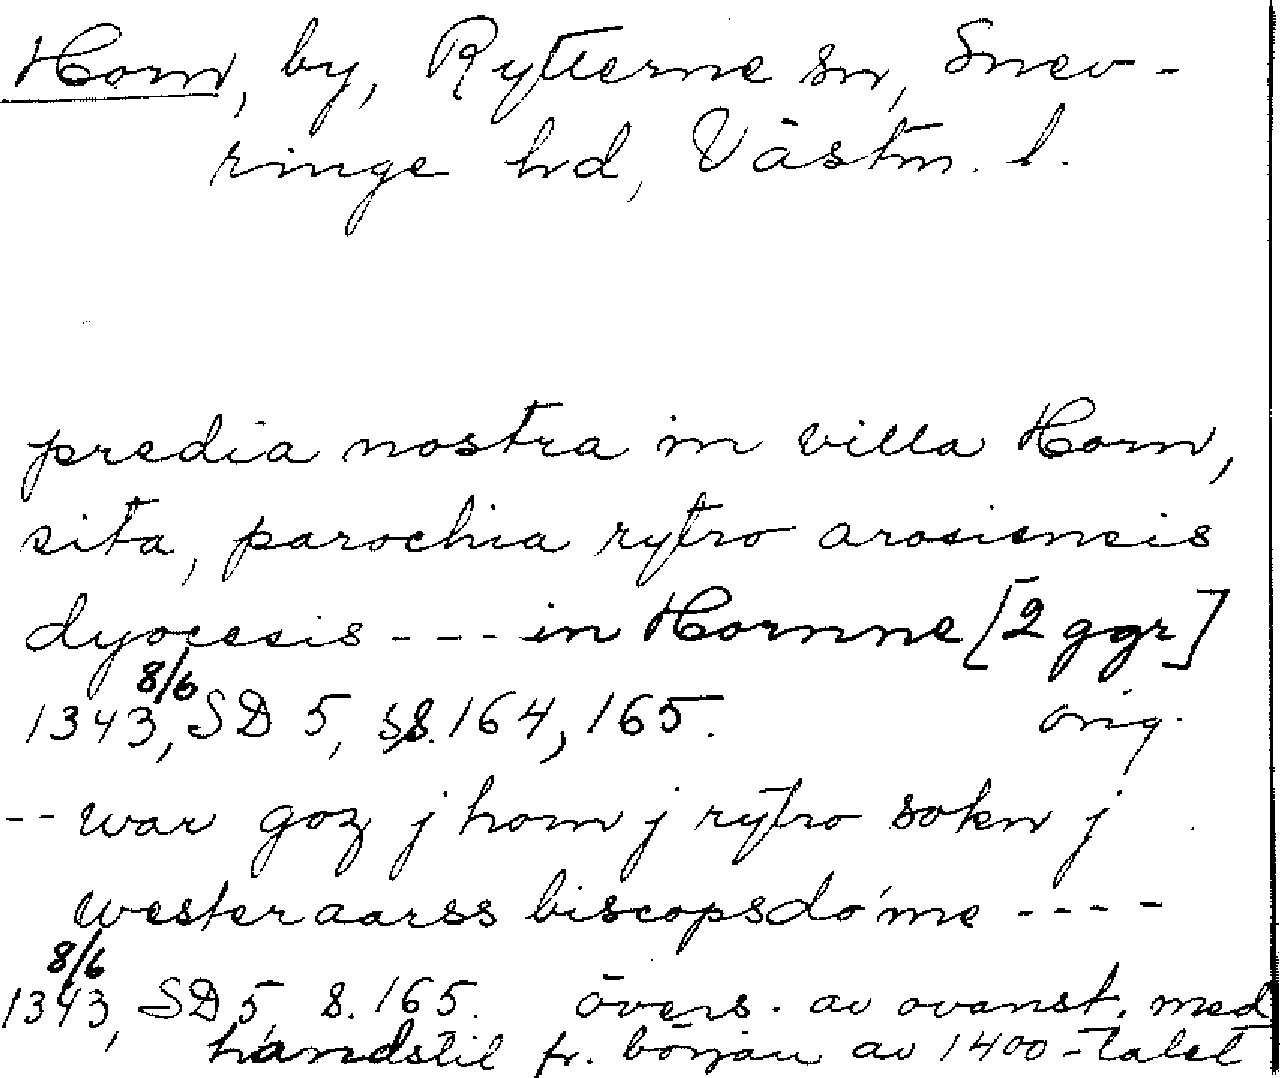 Horn, by, Rytterne sn, Snev-
ringe hd, Västm. l.
predia nostra in villa Horn,
sita, parochia rytro arosiensis
dyocesis --- in Hornne [2 ggr]
8/6
1343, SD 5, s. 164, 165. orig.
-- war goz j horn j rytro sokn j
westeraarss biscopsdóme ----
8/6
1343, SD 5, s. 165. övers. av ovanst. med
handstil fr. början av 1400-talet